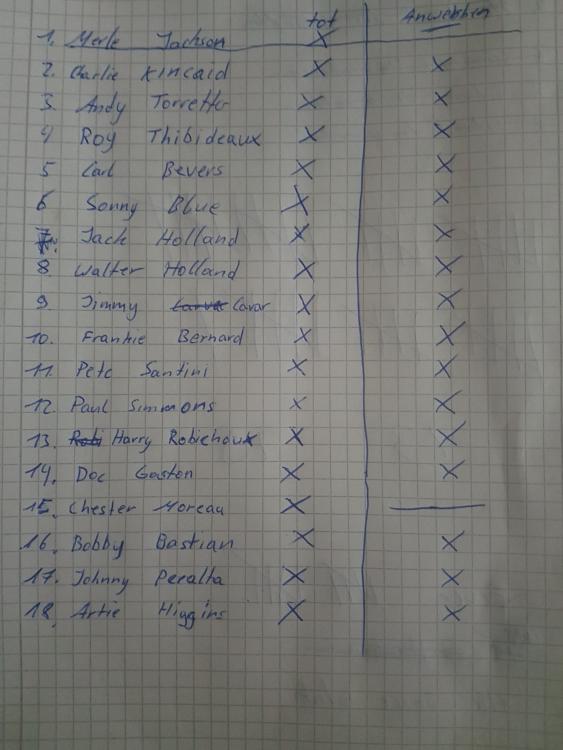 tot Anwebben
1. Merle Jackson X
2. Charlie Kincaid X X
3. Andy Torretto X X
4 Roy Thibideaux X X
5 Carl Bevers X X
6 Sonny Blue X X
7. Jack Holland X X
8 Walter Holland X X
9. Jimmy Cavar X X
10. Frankie Bernard X X
11. Pete Santini X X
12. Paul Simmons X X
13. Robi Harry Robichoux X X
14. Doc Gaston X X
15. Chester Moreau X
16. Bobby Bastian X X
17. Johnny Peralta X X
18. Artie Higgins X X